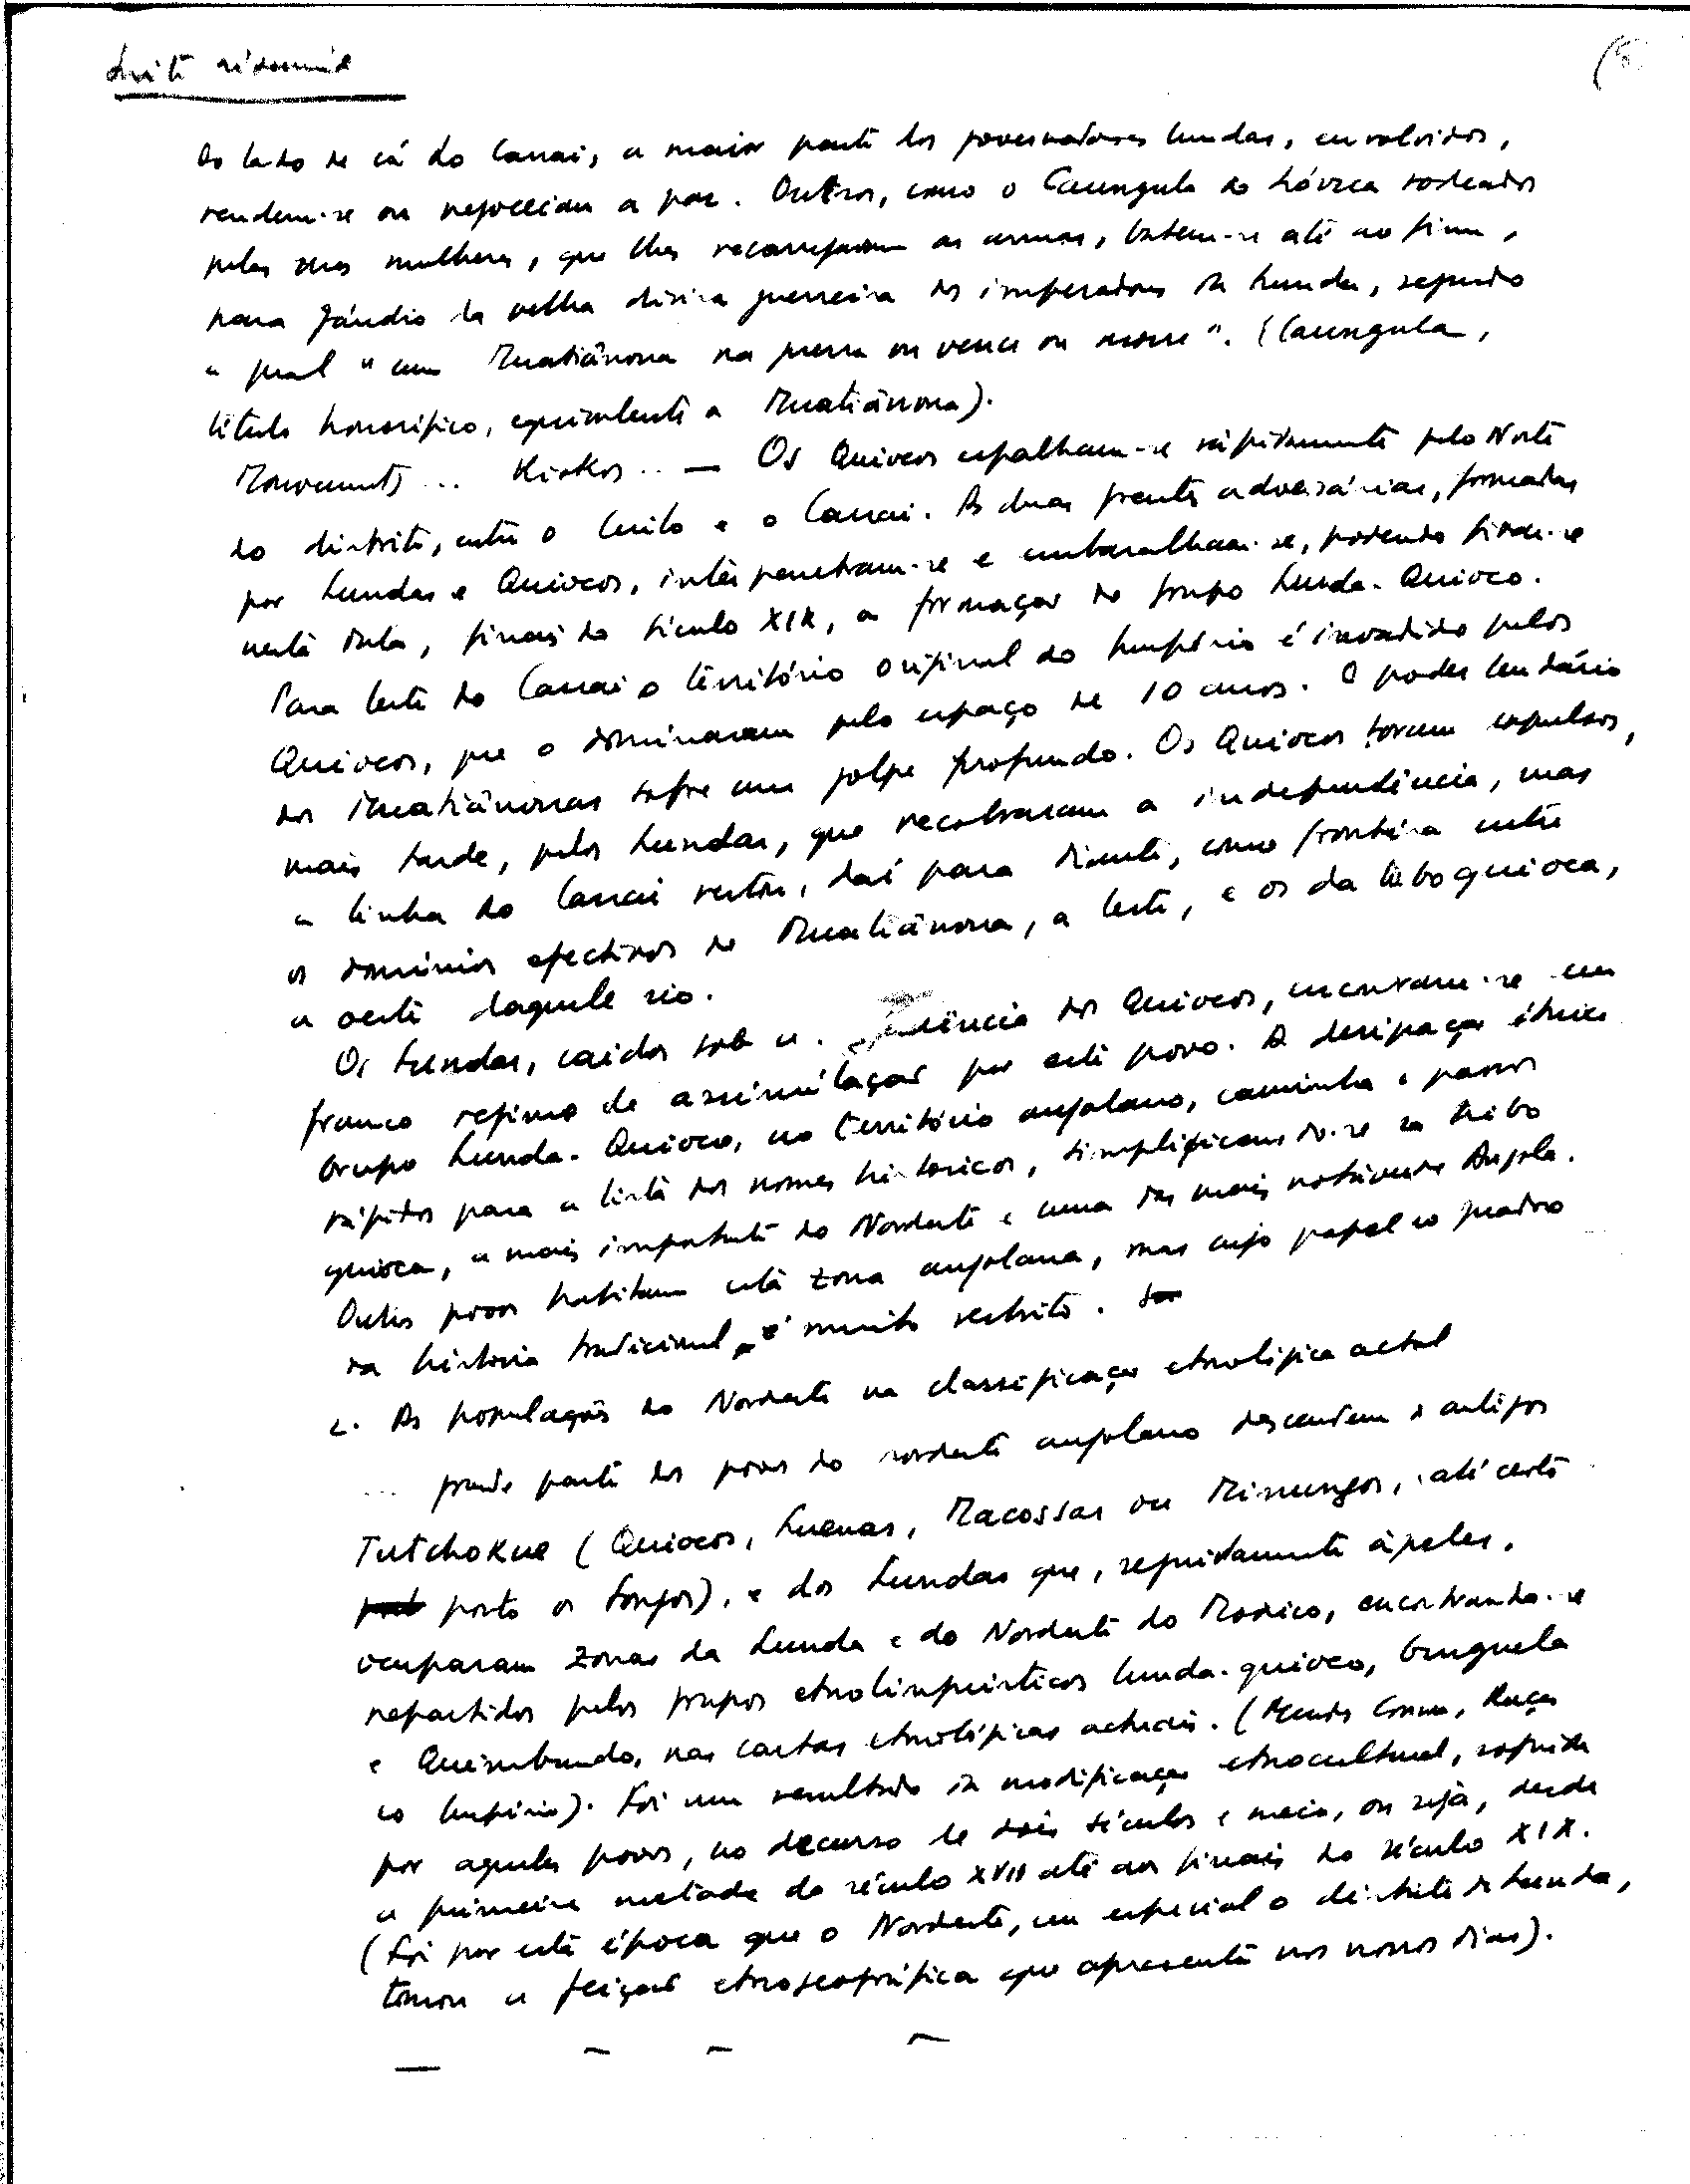 Suite résumé
(8
do lado de cá do Cassai, a maior parte dos governadores lundas, envolvidos,
rendem-se ou negoceiam a paz. Outros, como o Caungula do Lóvua rodeados
pelas suas mulheres, que lhes recarregavam as armas, batem-se até ao fim,
para gáudio da velha divisa guerreira dos imperadores da Lunda, segundo
a qual "um Muatiânvua na guerra ou vence ou morre". (Caungula,
título honorífico, equivalente a Muatiânvua).
Mouvements ... Kiokos .. — Os Quiocos espalham-se rápidamente pelo Norte
do distrito, entre o Cuilo e o Cassai. As duas frentes adversárias, formadas
por Lundas e Quiocos, interpenetram-se e embaralham-se, podendo fixar-se
nesta data, finais do século XIX, a formação do grupo Lunda-Quioco.
Para leste do Cassai o território original do Império é invadido pelos
Quiocos, que o dominaram pelo espaço de 10 anos. O poder lendário
dos Muatiânvuas sofre um golpe profundo. Os Quiocos foram expulsos,
mais tarde, pelos Lundas, que recobraram a independência, mas
a linha do Cassai restou, daí para diante, como fronteira entre
os domínios efectivos do Muatiânvua, a leste, e os da tribo quioca,
a oeste daquele rio.
Os Lundas, caídos sob a dência dos Quiocos, encontram-se em
franco regime de assimilação por este povo. A designação étnica
Grupo Lunda-Quioco, no território angolano, caminha a passos
rápidos para a lista dos nomes históricos, simplificando-se na tribo
quioca, a mais importante do Nordeste e uma das mais notáveis de Angola.
Outros povos habitam esta zona angolana, mas cujo papel no quadro
da história tradicional é muito restrito.
2. As populações do Nordeste na classificação etnológica actual
... grande parte dos povos do nordeste angolano descendem de antigos
Tutchokue (Quiocos, Luenas, Macossas ou Minungos, até certo
ponto os Songos), e dos Lundas que, seguidamente àqueles,
ocuparam zonas da Lunda e do Nordeste do Moxico, encontrando-se
repartidos pelos grupos etnolinguísticos lunda-quioco, Ganguela
e Quimbundo, nas cartas etnológicas actuais. (Mendes Correa, Raças
do Império). Foi um resultado da modificação etnocultural, sofrida
por aqueles povos, no decurso de dois séculos e meio, ou seja, desde
a primeira metade do século XVII até aos finais do século XIX.
(Foi por esta época que o Nordeste, em especial o distrito da Lunda,
tomou a feição etnogeográfica que apresenta nos nossos dias).